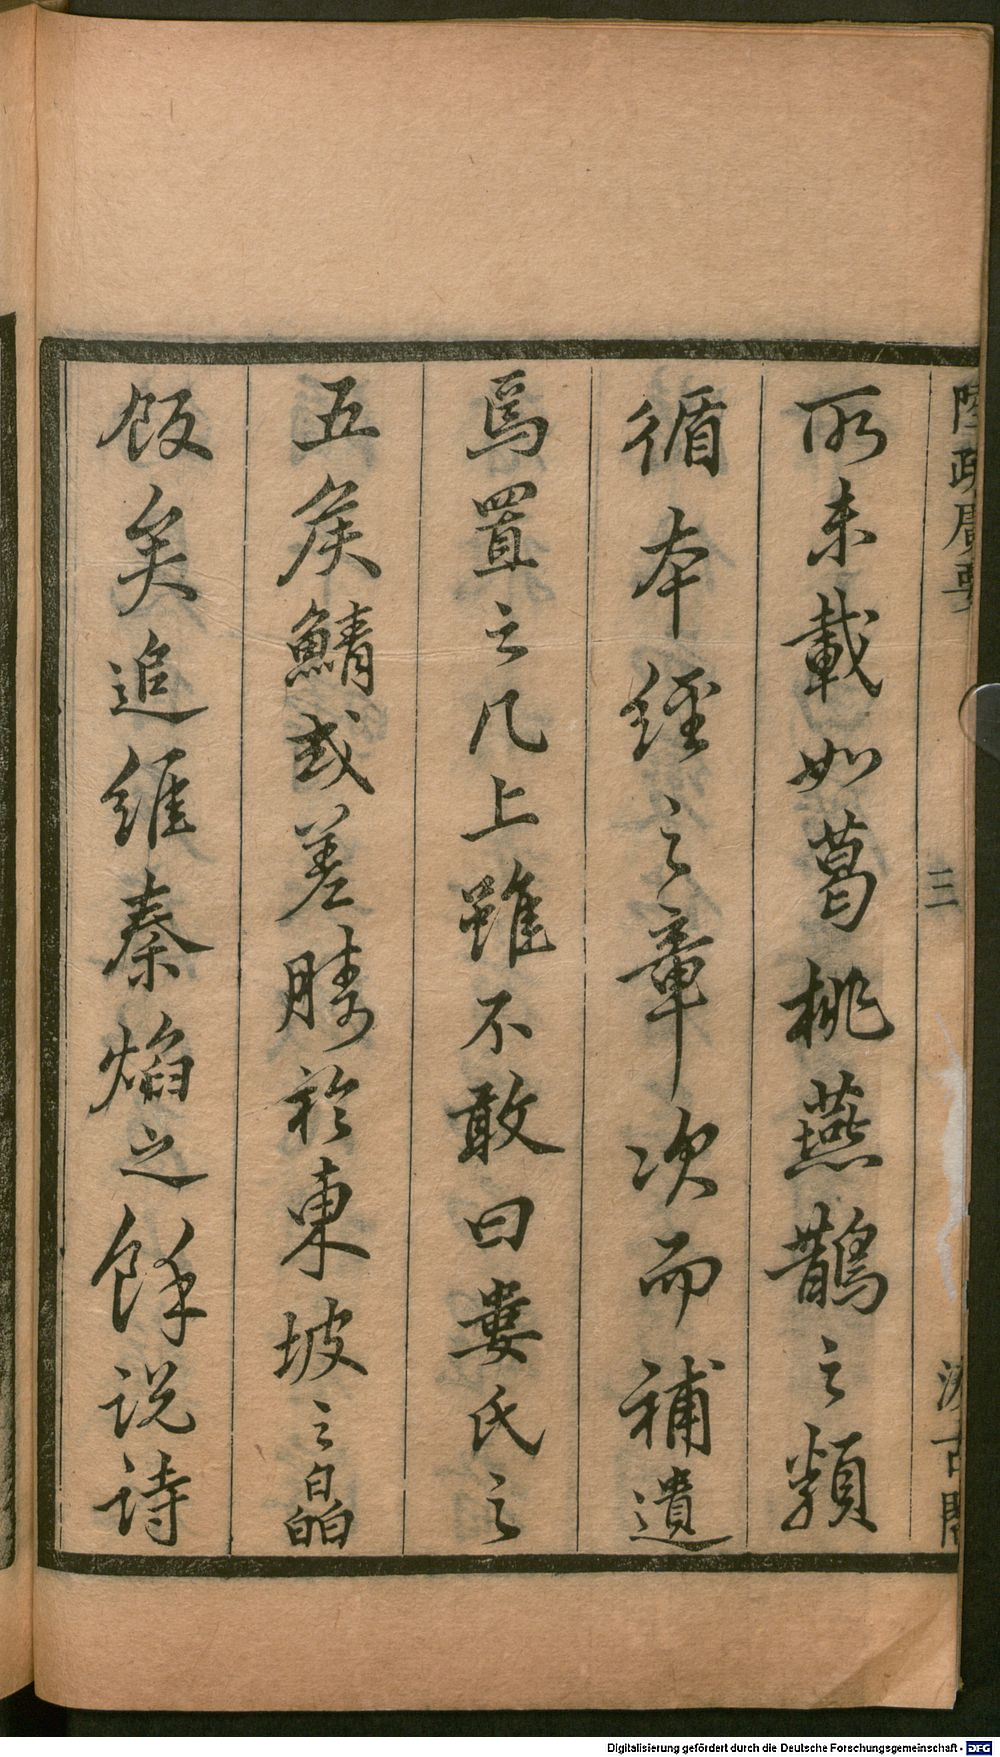 陸疏廣要
三
汲古閣
所未載如葛桃燕鵲之類
循本經之章次而補遺
焉置之几上雖不敢曰婁氏之
五矦鯖或差勝於東坡之皛
飯矣追維秦焰之餘説詩
Digitalisierung gefördert durch die Deutsche Forschungsgemeinschaft - DFG